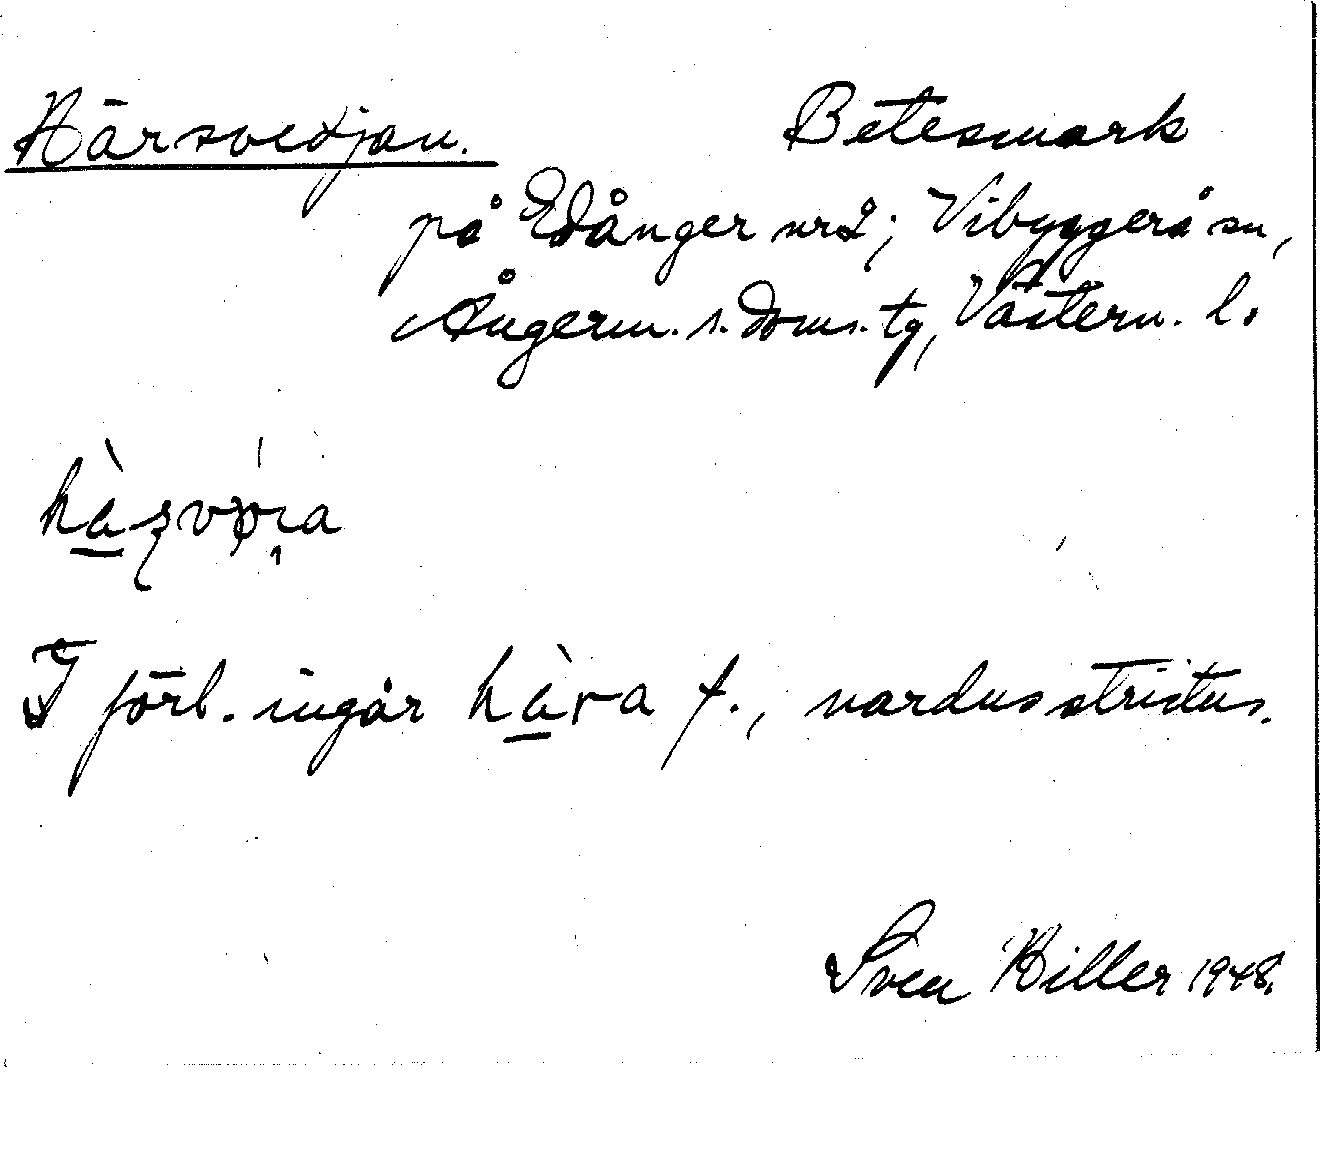 Härsvedjan. Betesmark
på Edånger nr 2; Vibyggerå sn,
Ångerm. s. doms. tg, Västern. l.
I förb. ingår hàra f., nardus strictus.
Sven Hiller 1948.